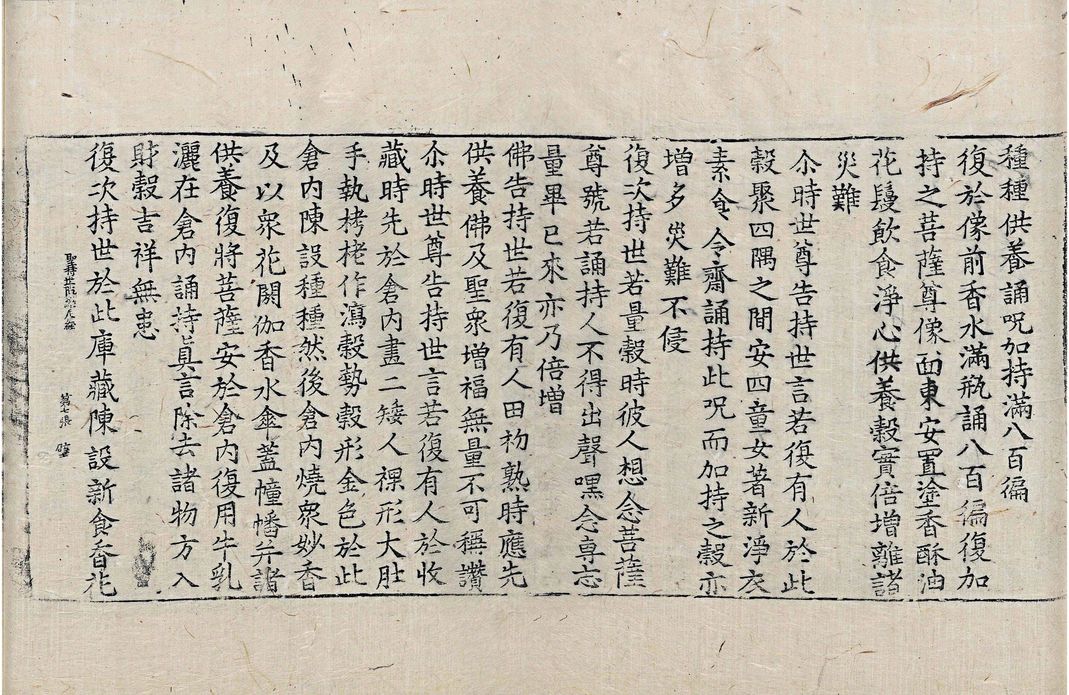 種種供養誦呪加持滿八百徧
復於像前香水滿瓶誦八百徧復加
持之菩薩尊像面東安置塗香酥油
花鬘飲食淨心供養穀實倍增離諸
災難
尒時世尊告持世言若復有人於此
穀聚四隅之間安四童女著新淨衣
素食令齋誦持此呪而加持之穀亦
增多災難不侵
復次持世若量穀時彼人想念菩薩
尊號若誦持人不得出聲嘿念專志
量畢已來亦乃倍增
佛告持世若復有人田秎熟時應先
供養佛及聖衆增福無量不可稱讚
尒時世尊告持世言若復有人於收
藏時先於倉內畫二矮人裸形大肚
手執栲栳作瀉穀勢穀形金色於此
倉內陳設種種然後倉內燒衆妙香
及以衆花閼伽香水金蓋幢幡幷諸
供養復將菩薩安於倉內復用牛乳
灑在倉內誦持眞言除去諸物方入
財穀吉祥無恙
第七張
復次持世於此庫藏陳設新食香花